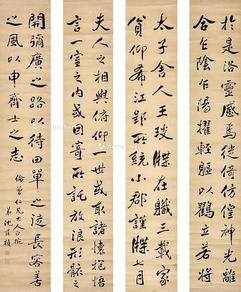 於是洛靈感焉徙倚彷徨神光離
合乍陰乍陽擢輕軀以鶴立若將
太子舍人王琰牒在職三載家
貧仰希江郢所統小郡謹牒七月
夫人之相與俯仰一世或取諸懷抱悟
言一室之內或因寄所託放浪形骸之
開彌廣之路以待田單之徒長容善
之風以申齊士之志
仁兄大人
弟沈葆楨